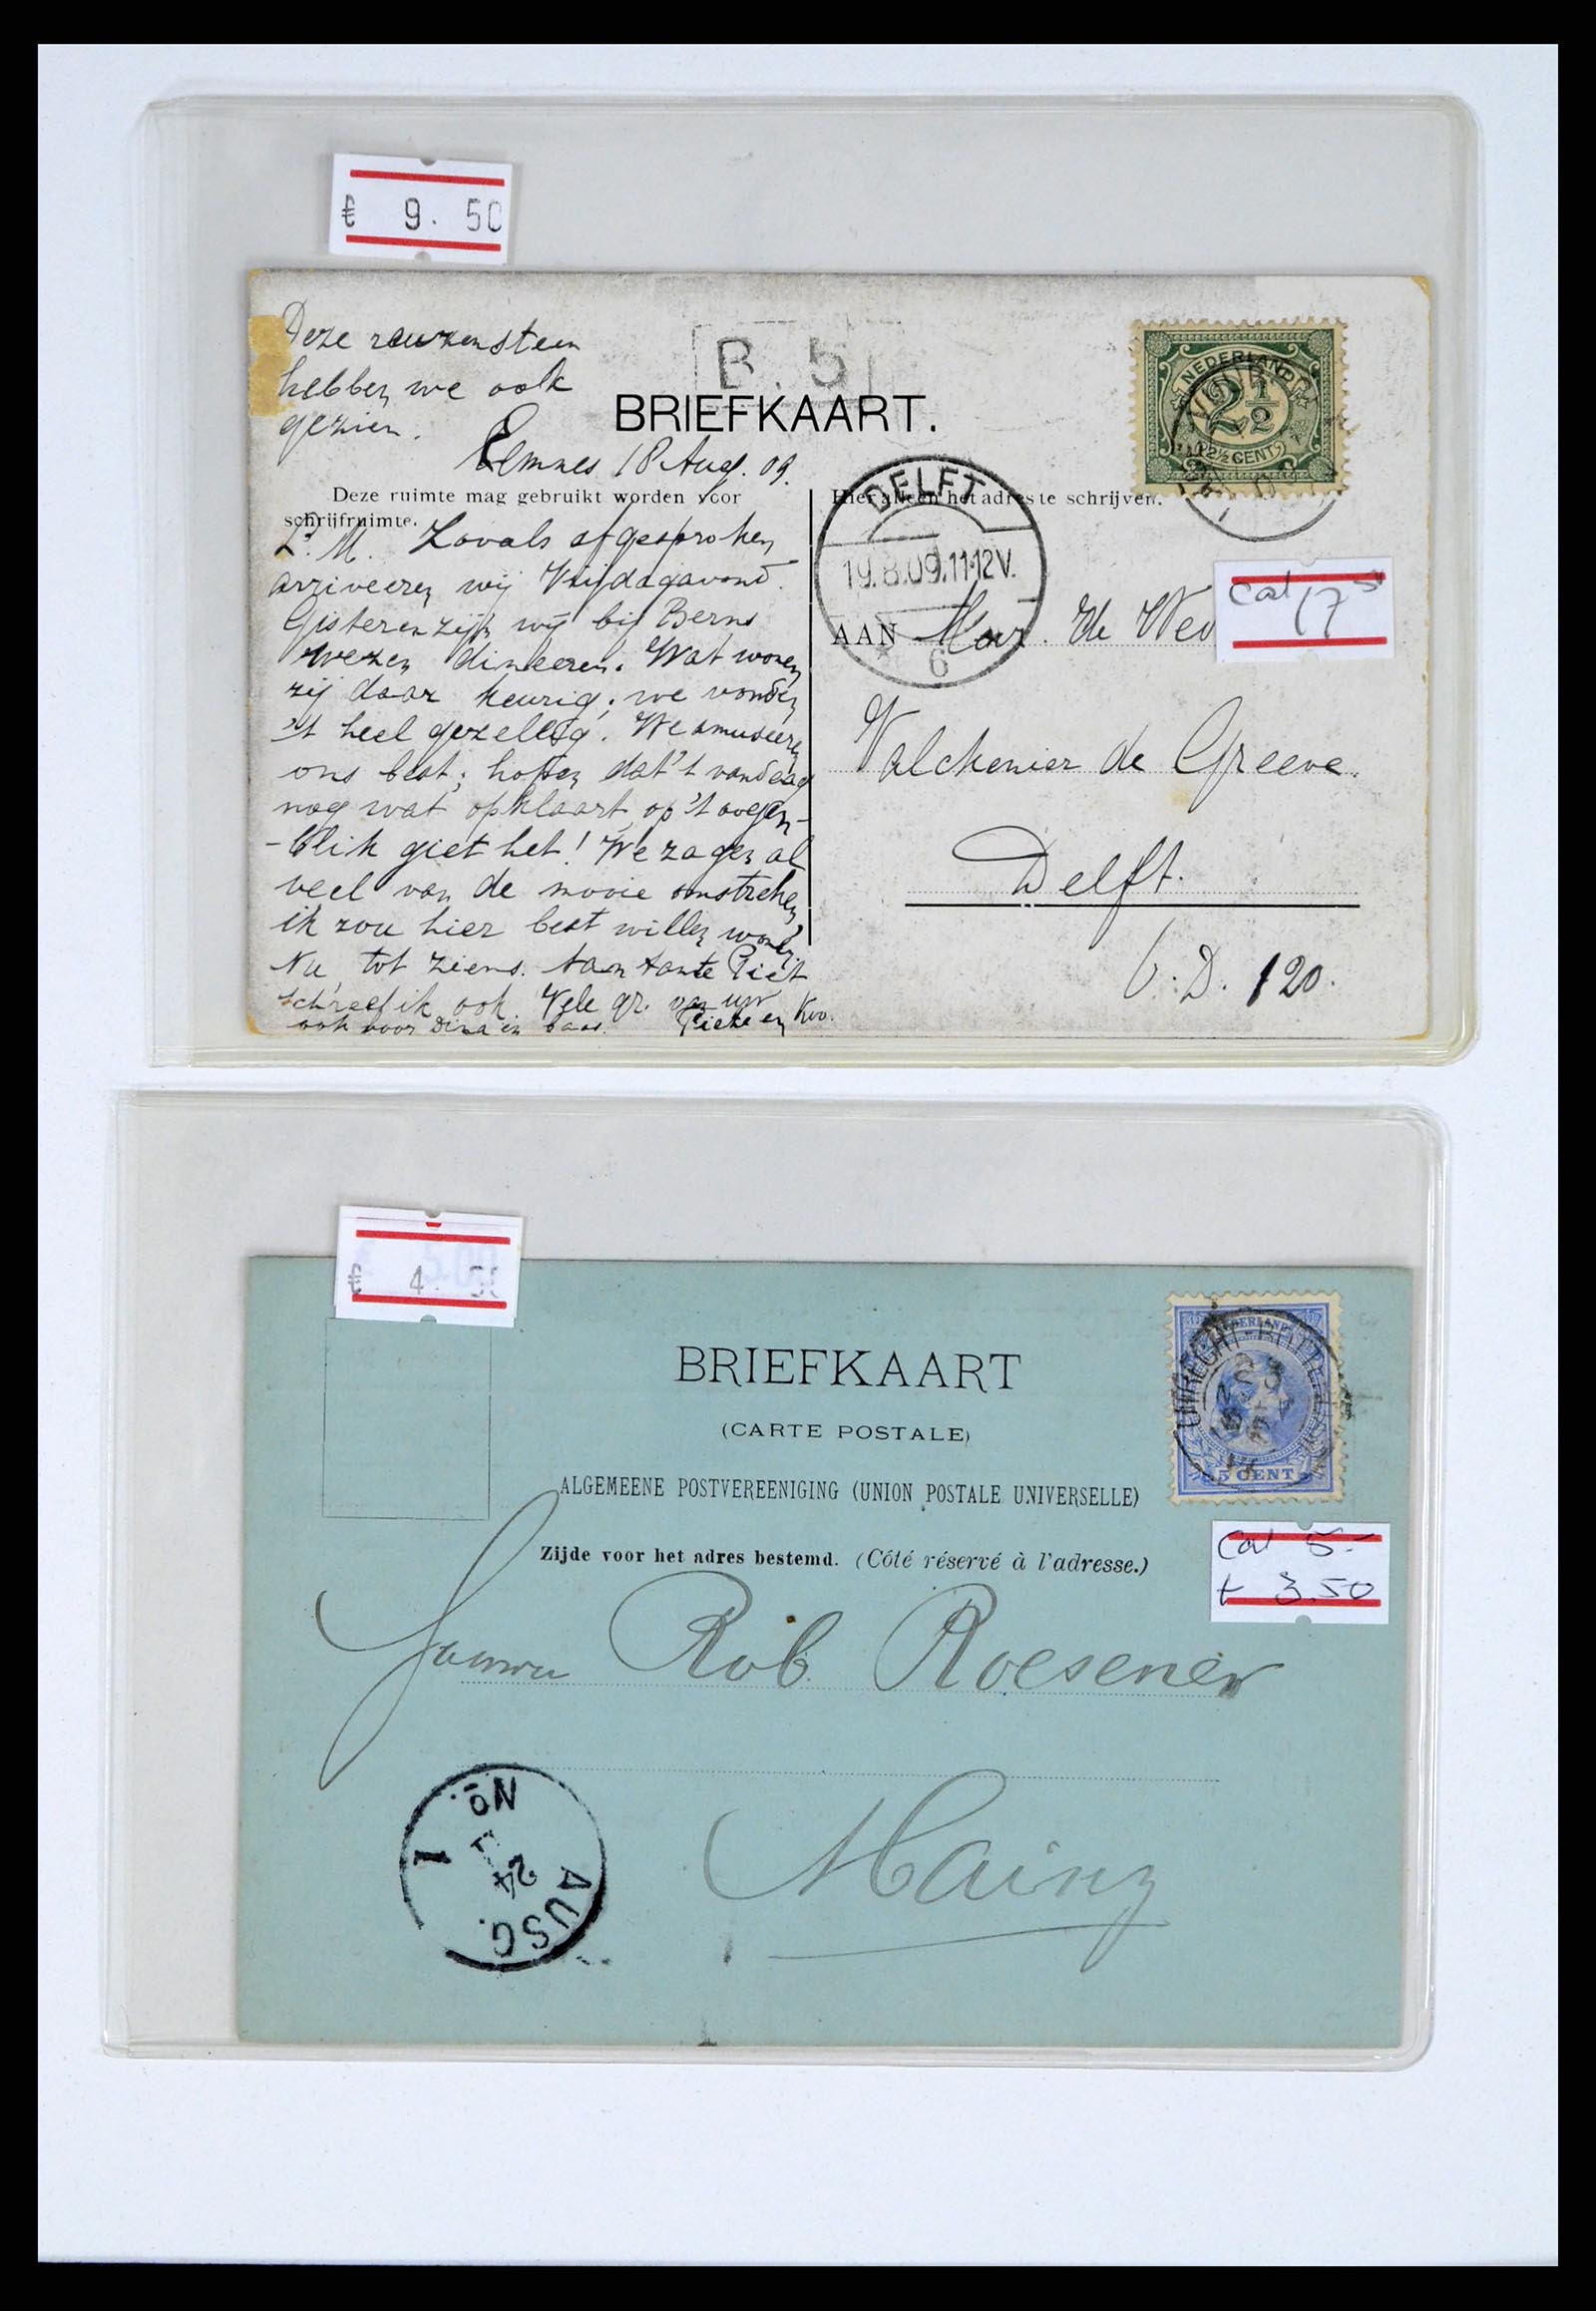 € 9.50
Deze reuzensteen
hebben we ook
gezien.
B. 5
BRIEFKAART.
Eemnes 18 Aug. 09.
Deze ruimte mag gebruikt worden voor
schrijfruimte.
Hier alleen het adres te schrijven.
L. M. Zooals afgesproken
arriveeren wij Vrijdagavond.
Gisteren zijn wij bij Berns
wezen dineeren. Wat wonen
zij daar keurig; we vonden
't heel gezellig. We amuseeren
ons best; hopen dat 't vandaag
nog wat opklaart, op 't oogen-
-blik giet het! We zagen al
veel van de mooie omstreken
ik zou hier best willen wonen.
Nu tot ziens. Aan tante Piet
schreef ik ook. Vele gr. van uw
ook voor Dina en baas. Pieke en Koo.
NEDERLAND
2½
2½ CENT
DELFT
19.8.09.11-12V.
6
cat 17 50
AAN Mevr. de Wed
Valckenier de Greeve.
Delft.
O:D. 120.
€ 4. 50
BRIEFKAART
(CARTE POSTALE)
ALGEMEENE POSTVEREENIGING (UNION POSTALE UNIVERSELLE)
Zijde voor het adres bestemd. (Côté réservé à l'adresse.)
NEDERLAND
5 CENT
UTRECHT-
cat 5-
+ 3.50
Rob. Roesener
Mainz
No. 1
24
AUSG.